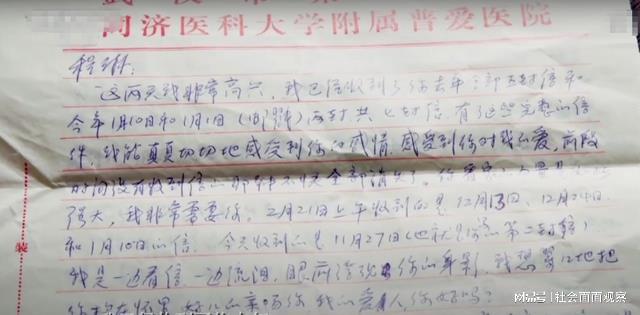 同济医科大学附属普爱医院
程琳:
这两天我非常高兴，我已经收到了你去年全部五封信和
今年1月10日和1月1日两封共七封信。有了这些完整的信
件，我能真真切切地感受到你的感情，感受到你对我的爱，前段
时间没有收到信的那种不快全部消失了。
强大，我非常需要你。2月21日上午收到的是12月13日、12月24日
和1月10日的信。今天收到的是11月27日(也就是你的第二封
我是一边看信，一边流泪，眼前浮现你的身影，我想紧紧地把
你我的爱人，你好吗？
装
搜狐号@社会面面观察